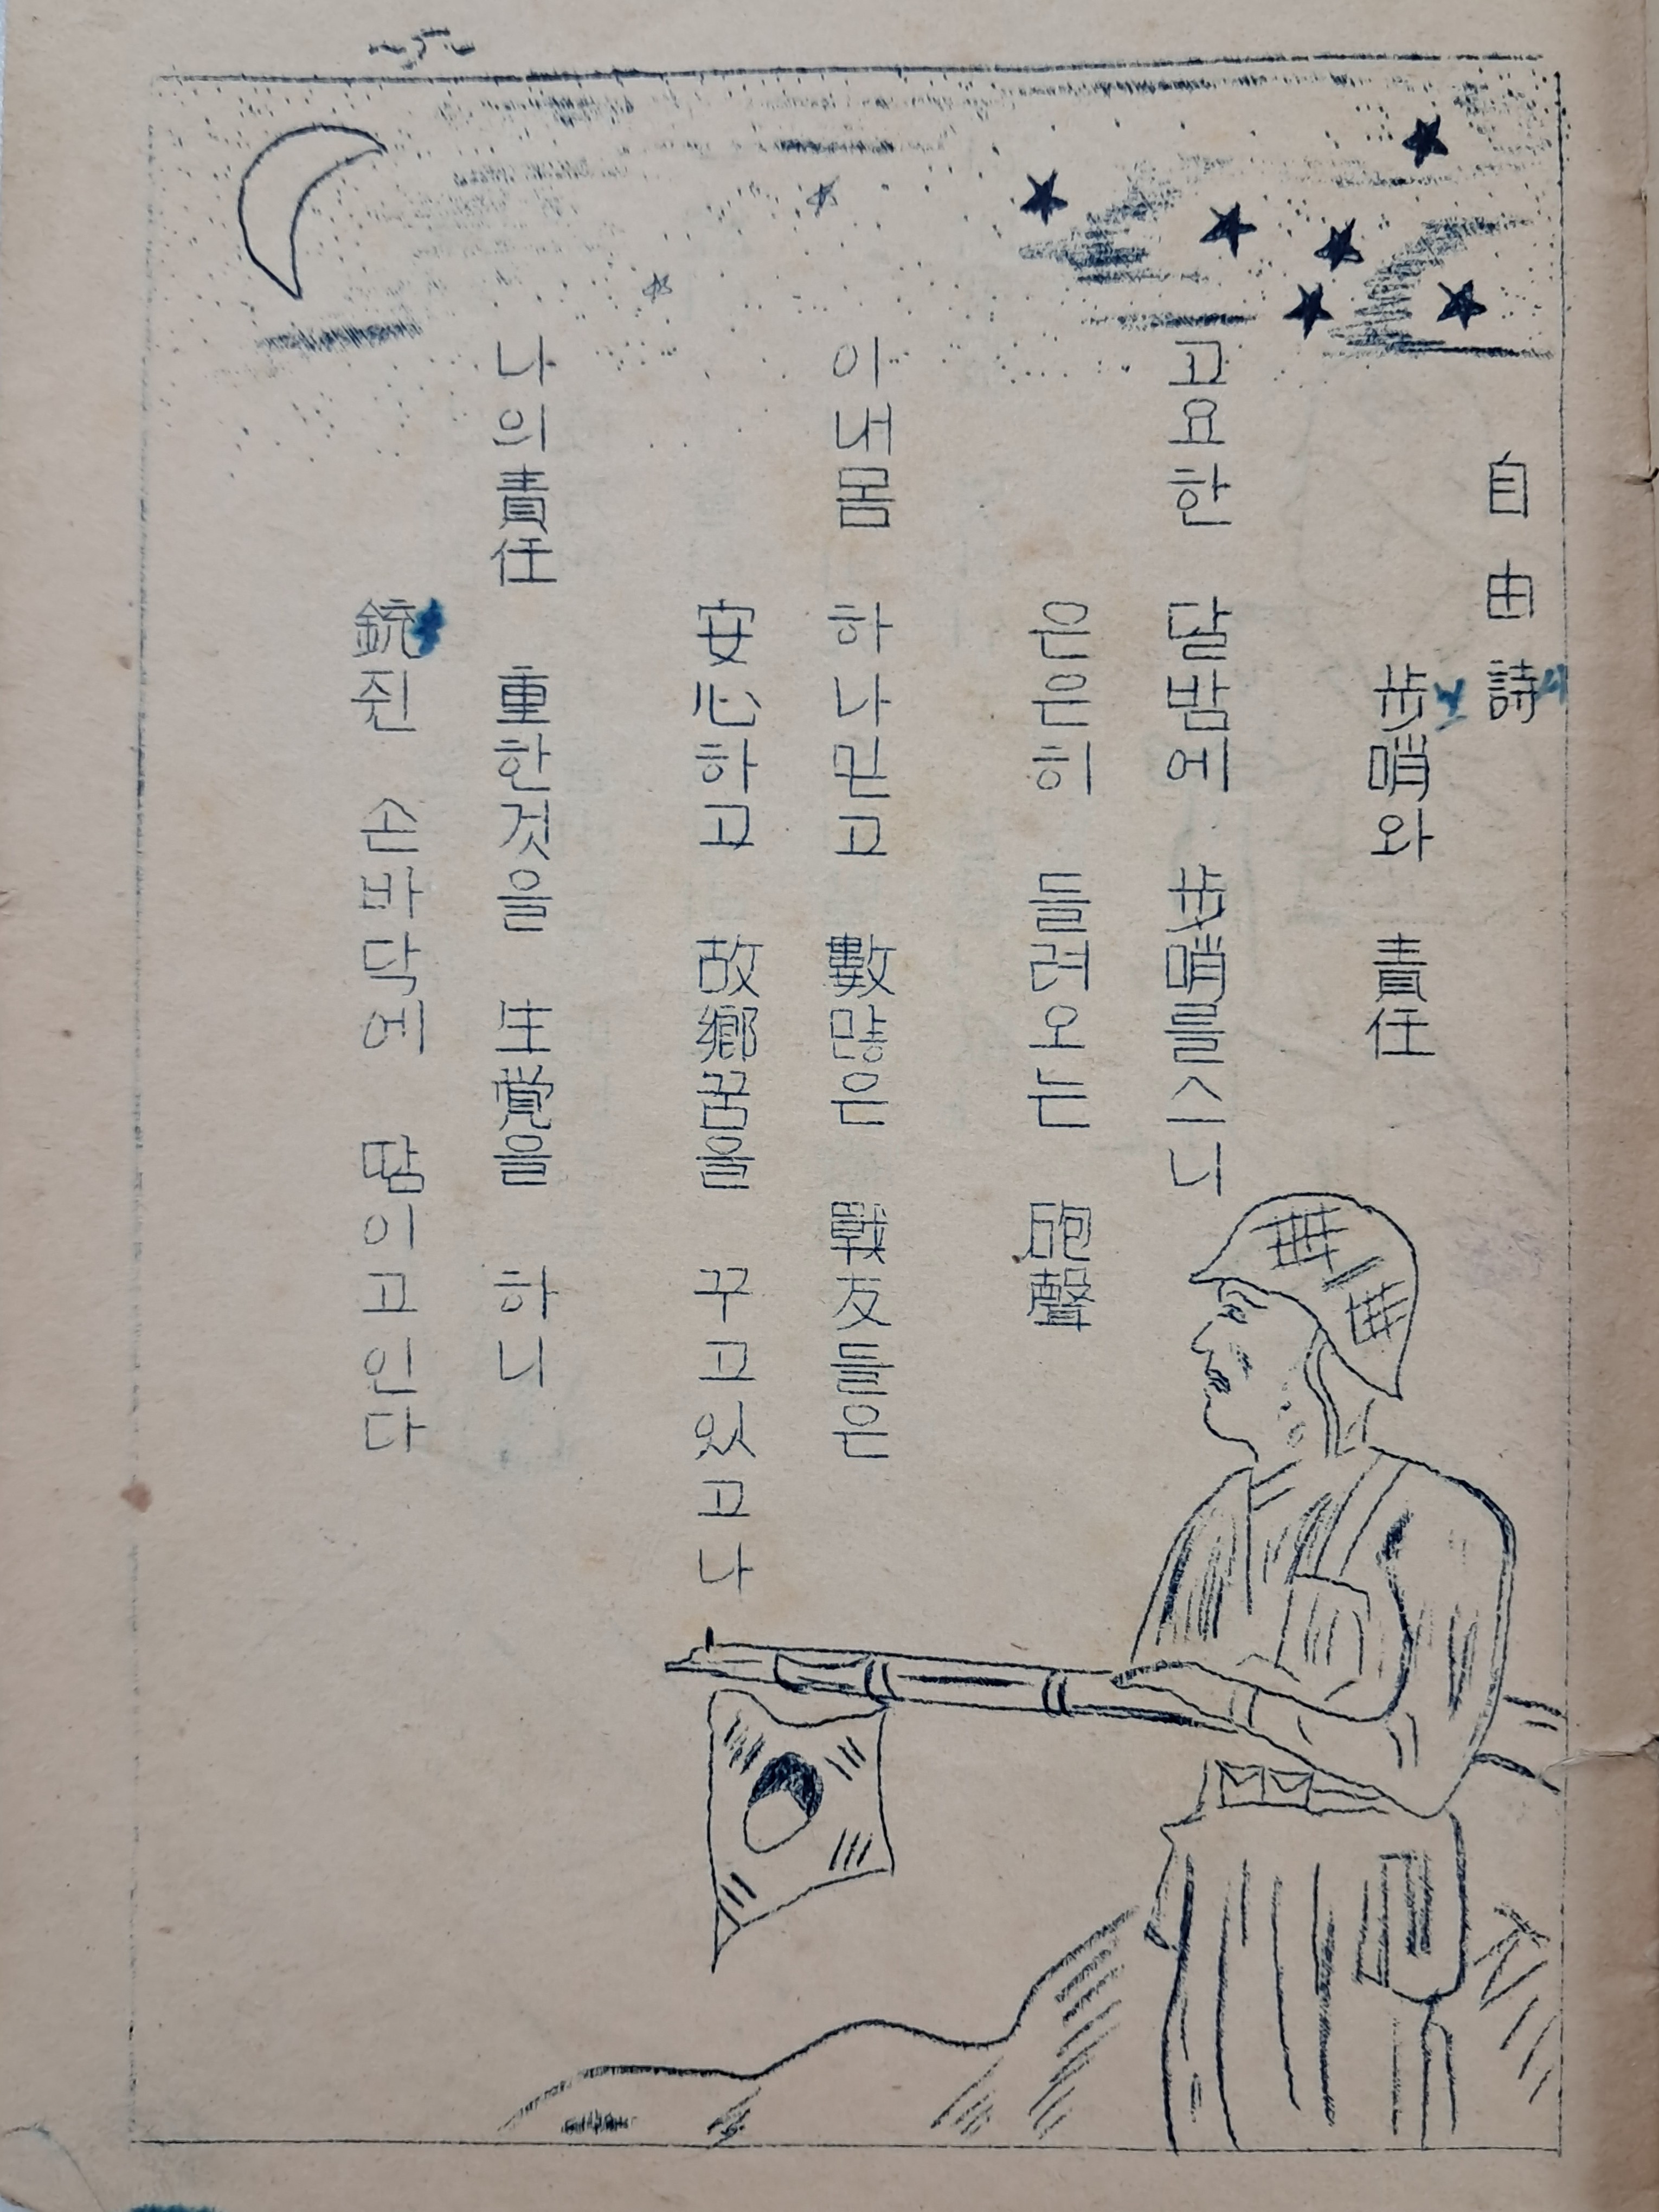 自由詩
步哨와 責任
고요한 달밤에 步哨를스니
은은히 들려오는 砲聲
이내몸 하나믿고 數많은 戰友들은
安心하고 故鄕꿈을 꾸고있고나
나의責任 重한것을 生覚을 하니
銃쥔 손바닥에 땀이고인다